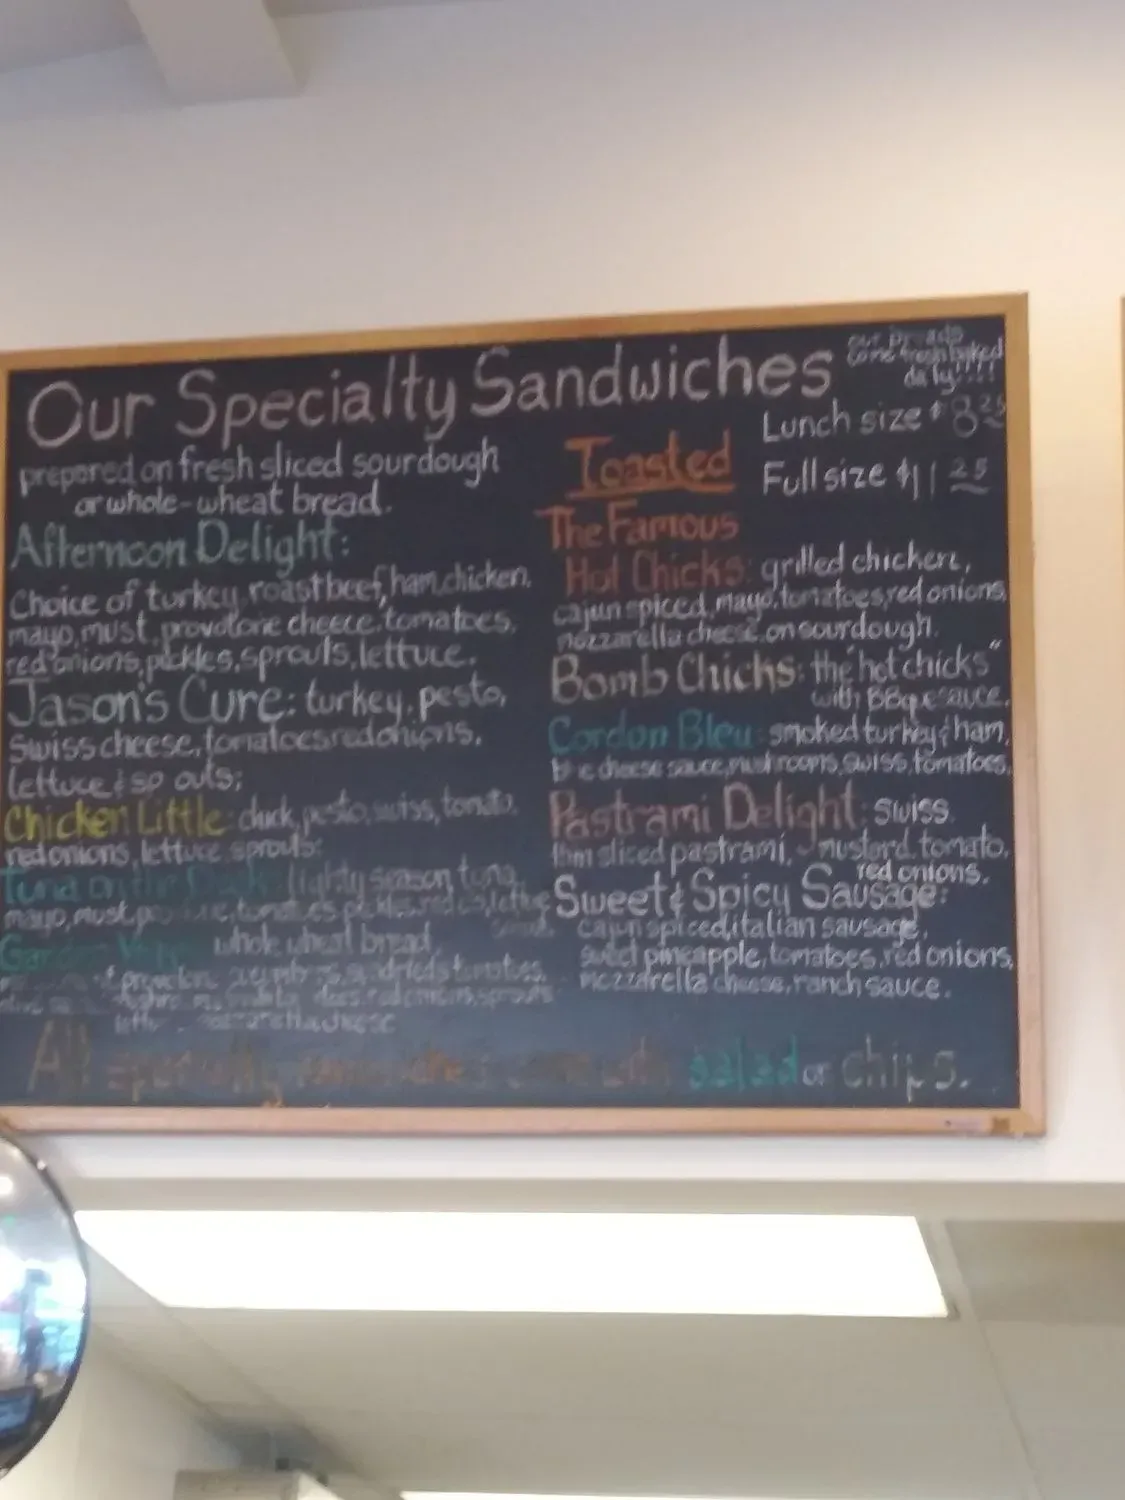 Our Specialty Sandwiches
our breads
come fresh baked
daily!!!!
prepared on fresh sliced sourdough
or whole-wheat bread.
Afternoon Delight:
Choice of turkey, roast beef, ham, chicken,
mayo, must, provolone cheece, tomatoes,
red onions, pickles, sprouts, lettuce.
Jason's Cure: turkey, pesto,
Swiss cheese, tomatoes, red onions,
lettuce & sp outs;
Chicken Little: duck, pesto, swiss, tomato,
red onions, lettuce, sprouts:
Tuna on the lightly season tuna,
mayo, must, tomatoes, pickles, lettuce
Garden whole wheat bread,
tomatoes,
sprouts
cheese
Lunch size $8.25
Toasted
Full size $11.25
The Famous
Hot Chicks: grilled chicken,
cajun spiced, mayo, tomatoes, red onions,
mozzarella cheese, on sourdough.
Bomb Chicks: the "hot chicks"
with BBQ sauce.
Cordon Bleu: smoked turkey & ham,
cheese sauce, mushrooms, swiss, tomatoes,
Pastrami Delight: swiss,
thin sliced pastrami, mustard, tomato,
red onions.
Sweet & Spicy Sausage:
cajun spiced, italian sausage,
sweet pineapple, tomatoes, red onions,
mozzarella cheese, ranch sauce.
All specialty sandwiches come with salad or chips.